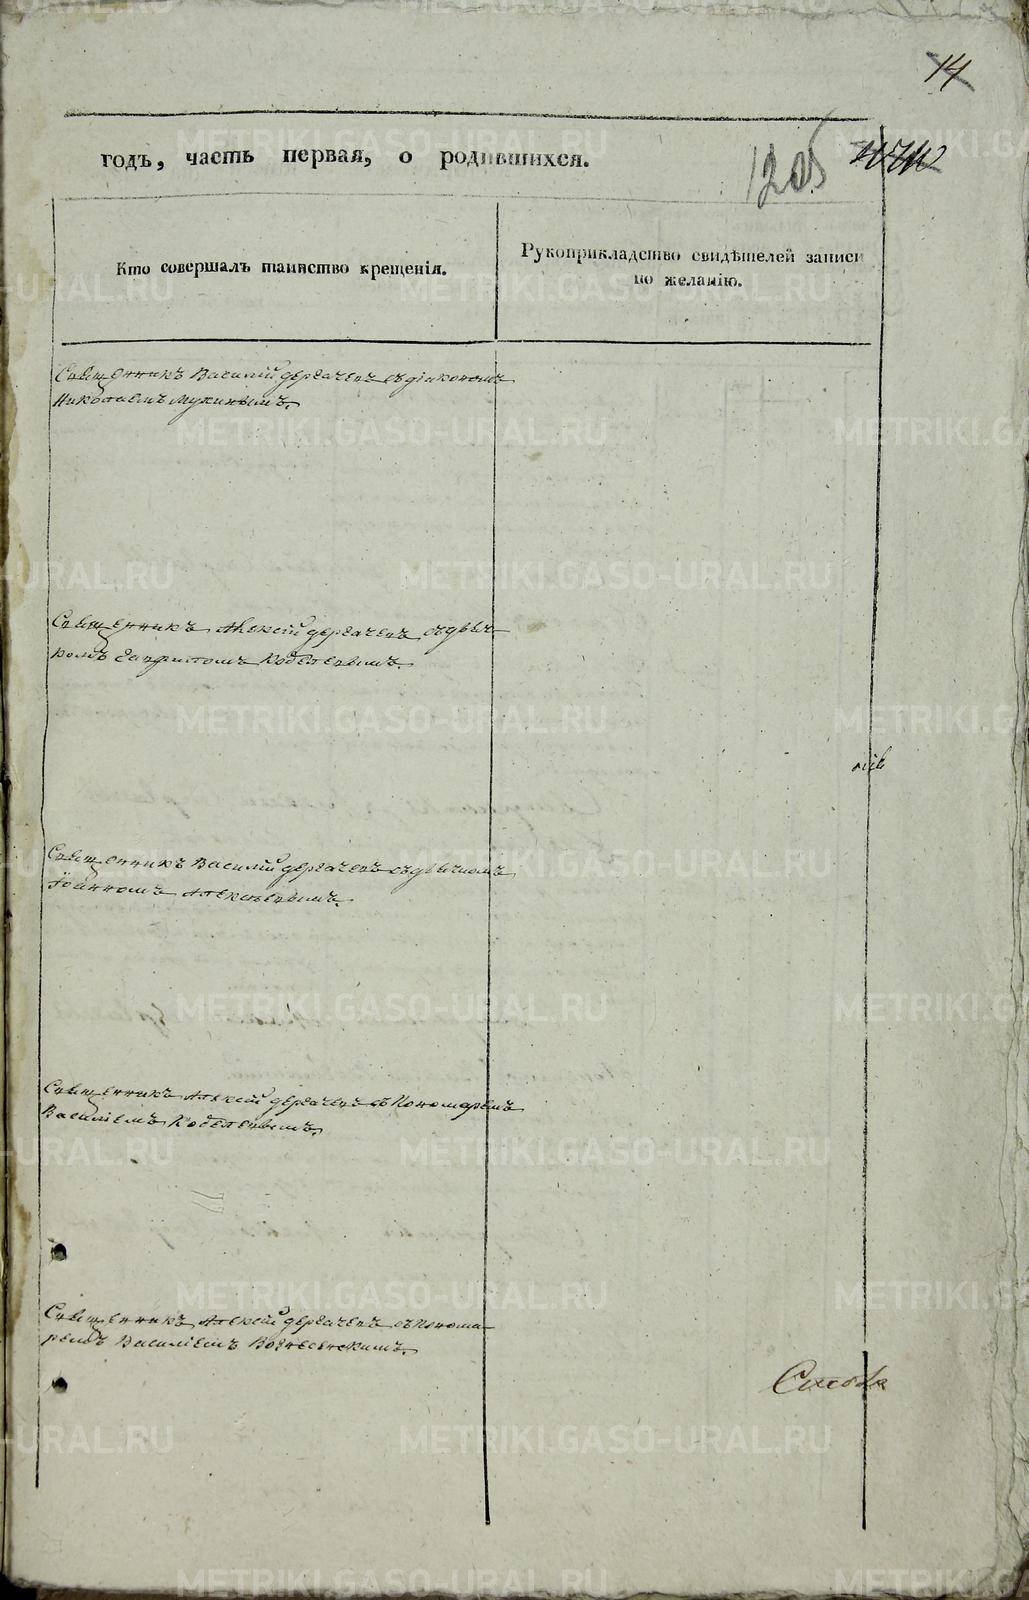 14
годъ, часть первая, о родившихся.
1205
Кто совершалъ таинство крещенія.
Рукоприкладство свидѣтелей записи
по желанію.
Священникъ Василій Дергачевъ съ діакономъ
Николаемъ Мухинымъ.
Священникъ Алексій Дергачевъ съ дьяч-
комъ Гавриломъ Кобелевымъ.
Священникъ Василій Дергачевъ съ дьячкомъ
Іоанномъ Алексѣевымъ.
Священникъ Алексій Дергачевъ съ Пономаремъ
Василіемъ Кобелевымъ.
Священникъ Алексій Дергачевъ съ Понома-
ремъ Василіемъ Вознесенскимъ.
METRIKI.GASO-URAL.RU